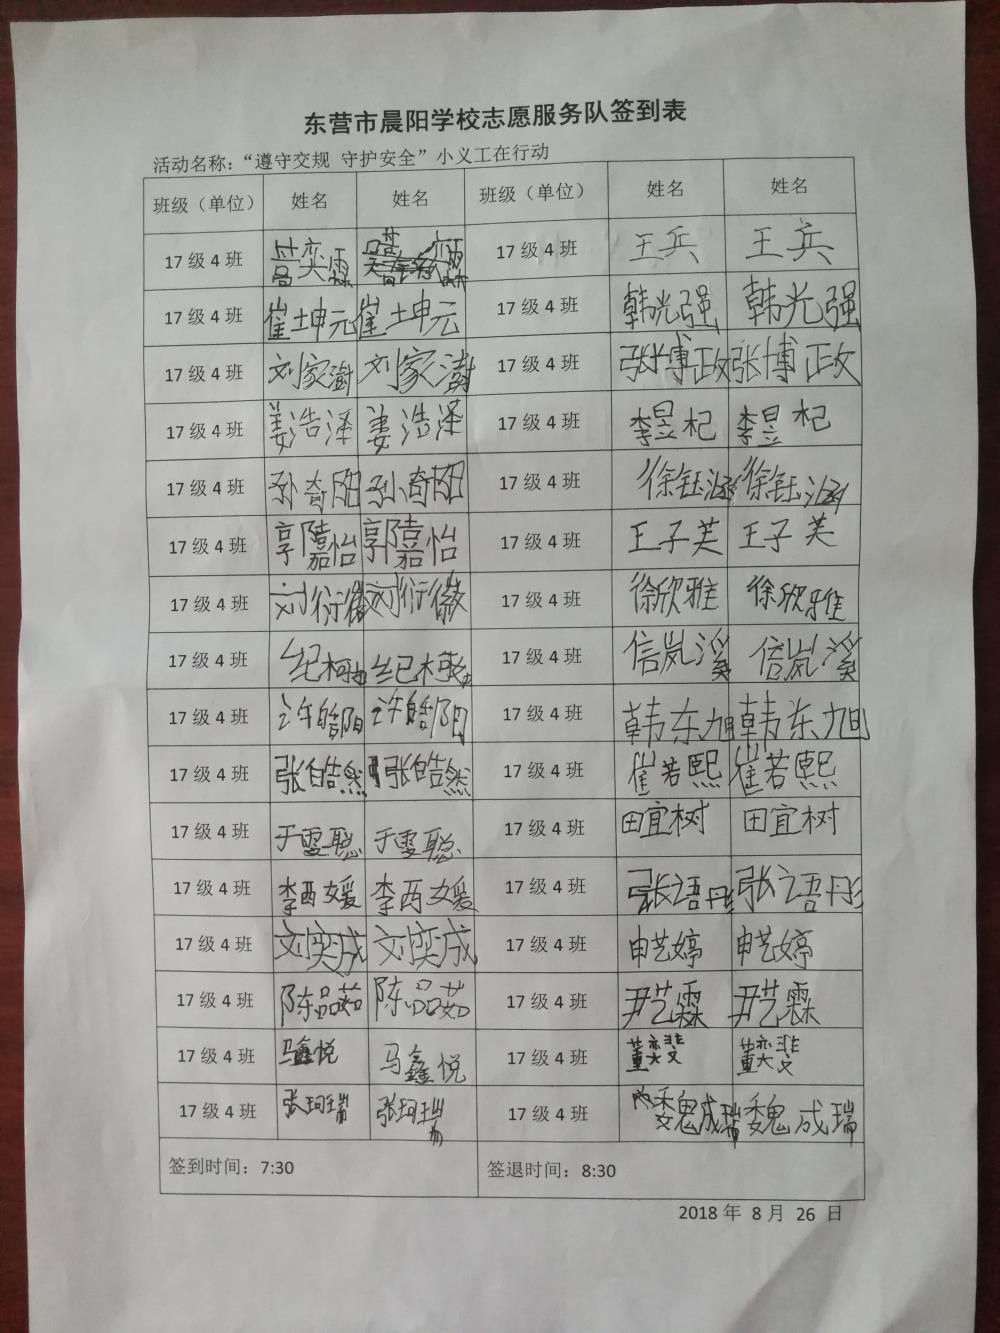 东营市晨阳学校志愿服务队签到表
活动名称：“遵守交规 守护安全”小义工在行动
班级（单位） 姓名 姓名 班级（单位） 姓名 姓名
17 级 4 班 17 级 4 班 王兵 王兵
17 级 4 班 崔坤元 崔坤元 17 级 4 班 韩光强 韩光强
17 级 4 班 刘家澍 刘家澍 17 级 4 班 张博政 张博政
17 级 4 班 姜浩泽 姜浩泽 17 级 4 班 李昱杞 李昱杞
17 级 4 班 孙奇阳 孙奇阳 17 级 4 班 徐钰涵 徐钰涵
17 级 4 班 郭嘉怡 郭嘉怡 17 级 4 班 王子芙 王子芙
17 级 4 班 刘衍徽 刘衍徽 17 级 4 班 徐欣雅 徐欣雅
17 级 4 班 17 级 4 班 信岚溪 信岚溪
17 级 4 班 许皓阳 许皓阳 17 级 4 班 韩东旭 韩东旭
17 级 4 班 张皓然 张皓然 17 级 4 班 崔若熙 崔若熙
17 级 4 班 于雯聪 于雯聪 17 级 4 班 田宜树 田宜树
17 级 4 班 李西媛 李西媛 17 级 4 班 张语彤 张语彤
17 级 4 班 刘奕成 刘奕成 17 级 4 班 申艺婷 申艺婷
17 级 4 班 陈品茹 陈品茹 17 级 4 班 尹艺霖 尹艺霖
17 级 4 班 马鑫悦 马鑫悦 17 级 4 班 董奕斐 董奕斐
17 级 4 班 张珂瑞 张珂瑞 17 级 4 班 魏成瑞 魏成瑞
签到时间：7:30 签退时间：8:30
2018 年 8 月 26 日